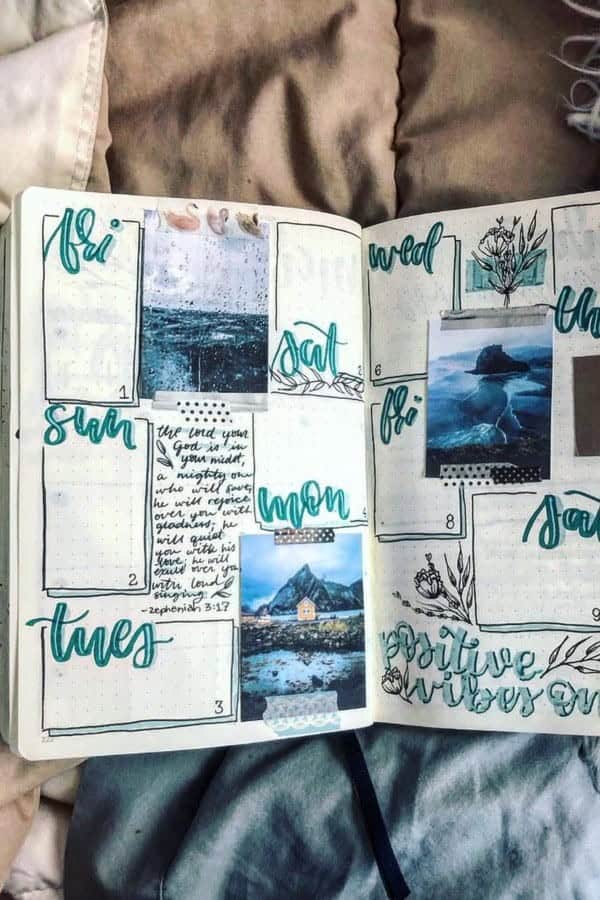 fri
1
sat
2
sun
2
the lord your
God is in
your midst,
a mighty one
who will save;
he will rejoice
over you with
gladness; he
will quiet
you with his
love; he will
exult over you
with loud
singing.
-zepheniah 3:17
mon
4
tues
3
wed
6
th
fri
8
sat
9
positive
vibes on